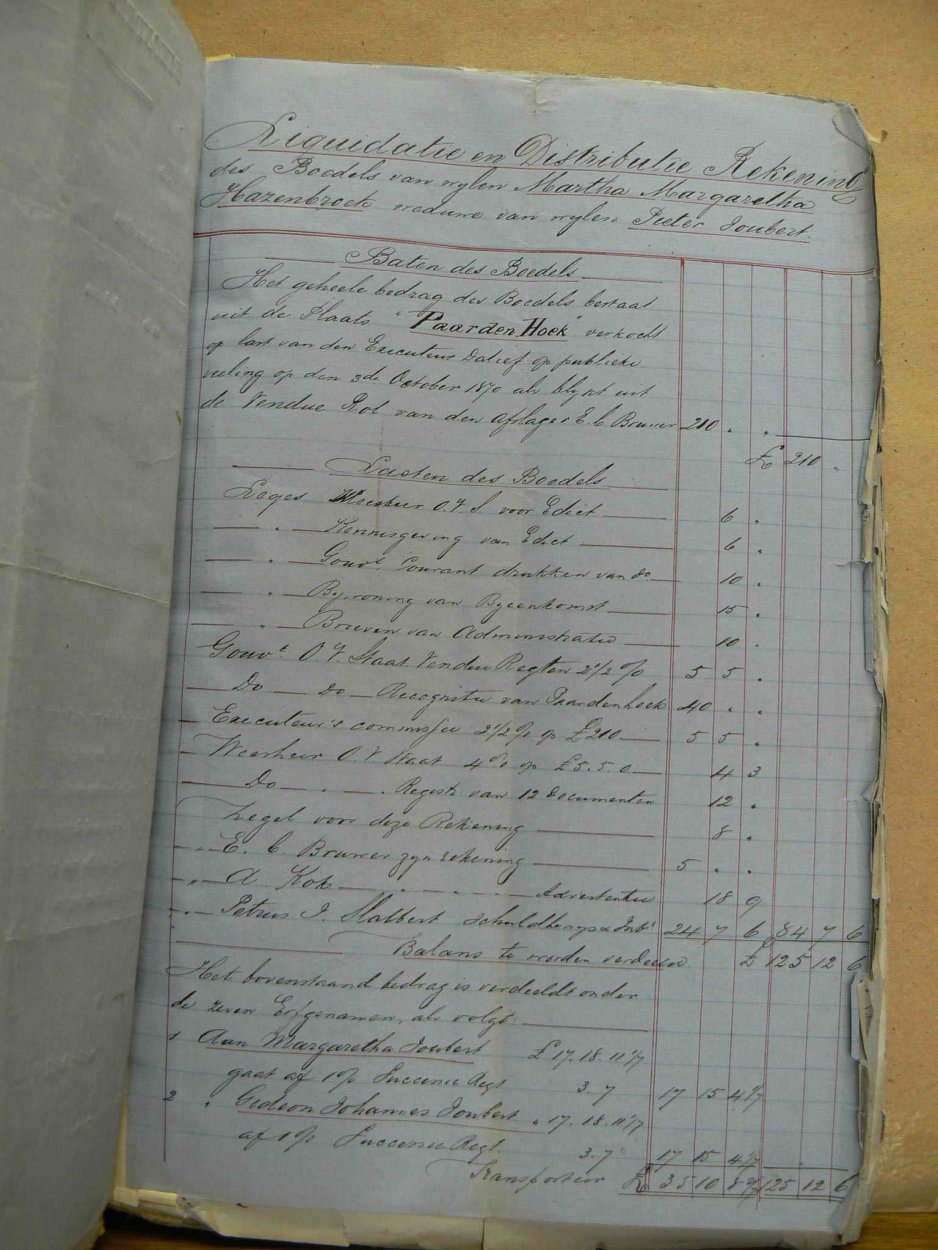 Liquidatie en Distributie Rekening
des Boedels van wylen Martha Margaretha
Hazenbroek weduwe van wylen Pieter Joubert.
Baten des Boedels
Het geheele bedrag des Boedels bestaat
uit de Plaats "Paarden Hoek" verkocht
op last van den Executeur Datief op publieke
veiling op den 3de October 1870 als blykt uit
de Vendue Rol van den afslager E. C. Brouwer 210 . .
£ 210 .
Lasten des Boedels
Leges Weesheer O.V.S. voor Edict 6 .
" Kennisgeving van Edict 6 .
" Gouvt Courant drukken van do 10 .
" Bywoning van Byeenkomst 15 .
" Brieven van Administratie 10 .
Gouvt O.V. Staat Vendu Regten 2 1/2 % 5 5 .
Do Do Recognitie van Paardenhoek 40 . .
Executeur's commissie 2 1/2 % op £210 5 5 .
Weesheer O.V. Staat 4 % op £5.5.0 4 3
Do " " Registr van 12 Documenten 12 .
Zegel voor deze Rekening 8 .
" E. C. Brouwer zyn rekening 5 . .
" A. Kok " " " Advertentie 18 9
" Petrus J. Malbert schuldbewys & Intt 24 7 6 84 7 6
Balans te worden verdeeld £ 125 12 6
Het bovenstaand bedrag is verdeeldt onder
de zeven Erfgenamen, als volgt.
1 Aan Margaretha Joubert £ 17.18.11 1/7
gaat af 1 % Successie Regt 3.7 17 15 4 1/7
2 " Gideon Johannes Joubert " 17.18.11 1/7
af 1 % Successie Regt. 3.7 17 15 4 1/7
Transporteer £ 35 10 8 2/7 125 12 6